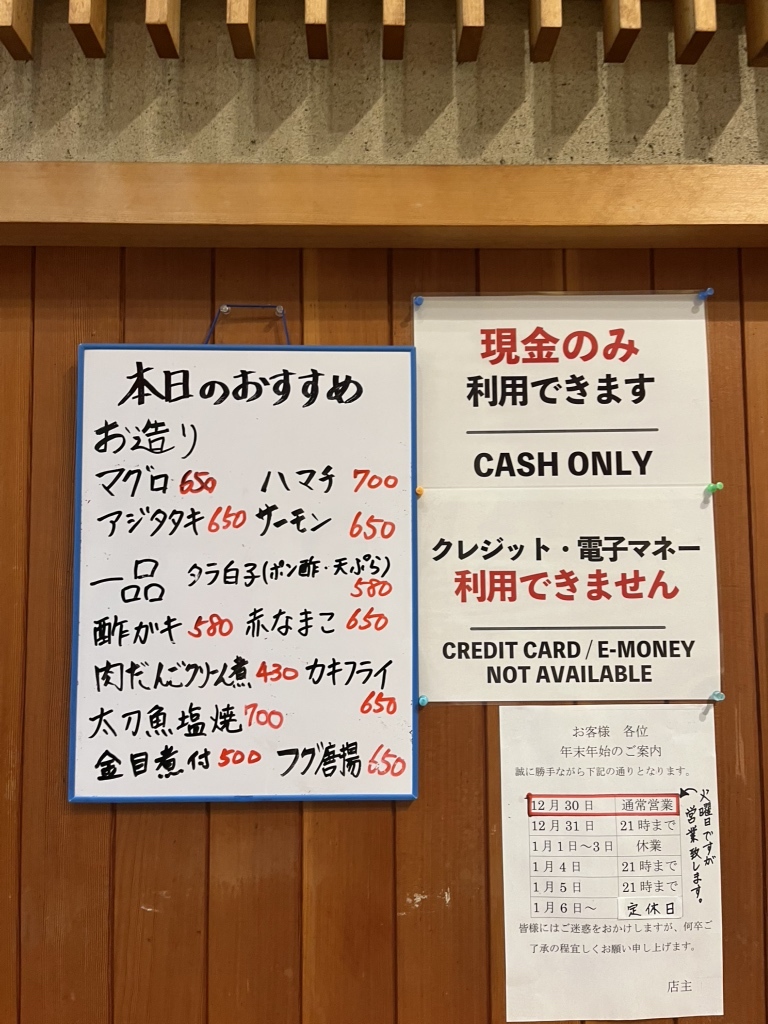 本日のおすすめ
お造り
マグロ 650 ハマチ 700
アジタタキ 650 サーモン 650
一品 タラ白子(ポン酢・天ぷら)
580
酢ガキ 580 赤なまこ 650
肉だんごクリーム煮 430 カキフライ
650
太刀魚塩焼 700
金目煮付 500 フグ唐揚 650
現金のみ
利用できます
CASH ONLY
クレジット・電子マネー
利用できません
CREDIT CARD / E-MONEY
NOT AVAILABLE
お客様 各位
年末年始のご案内
誠に勝手ながら下記の通りとなります。
12月30日 通常営業
12月31日 21時まで
1月1日〜3日 休業
1月4日 21時まで
1月5日 21時まで
1月6日〜 定休日
火曜日ですが
営業致します。
皆様にはご迷惑をおかけしますが、何卒ご
了承の程宜しくお願い申し上げます。
店主